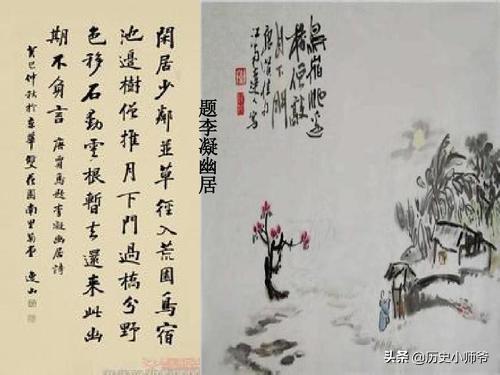 閑居少鄰並草徑入荒園鳥宿
池邊樹僧推月下門過橋分野
色移石動雲根暫去還來此幽
期不負言 唐賈島題李凝幽居詩
癸巳仲秋於京華雙花園南里 逸山
题李凝幽居
鳥宿池邊
樹僧敲
月下門
头条 @历史小师爷